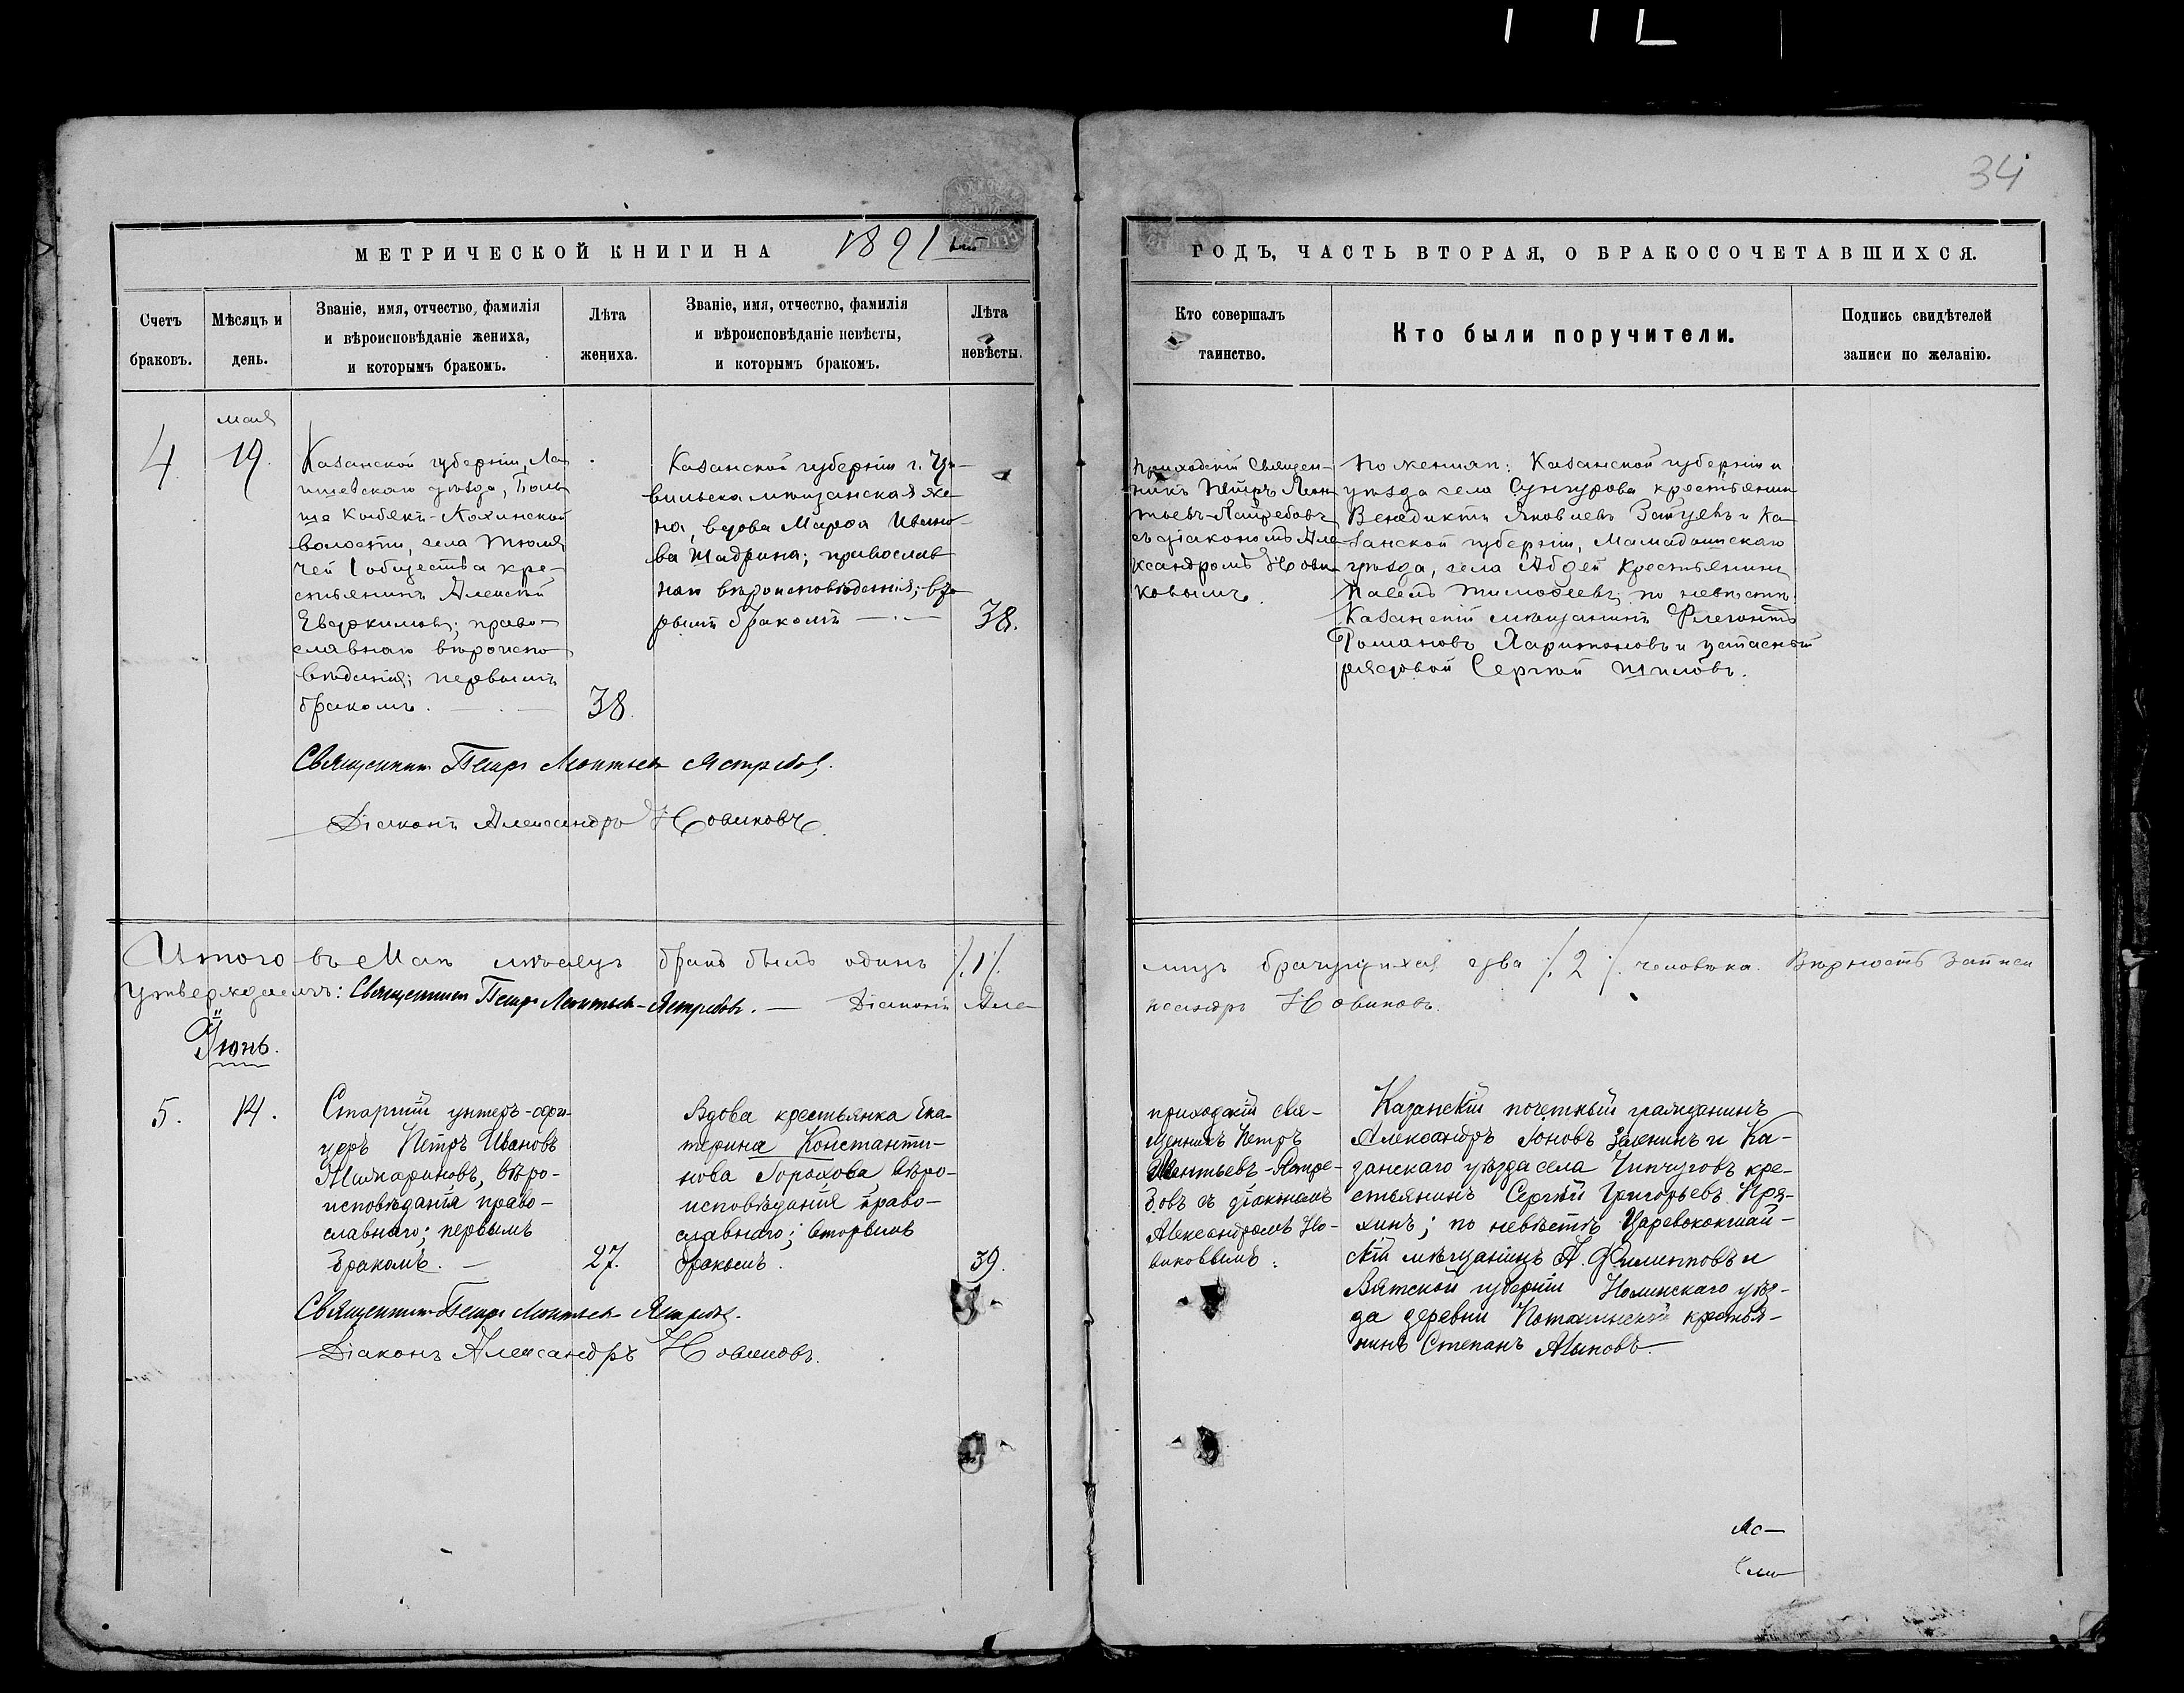 34
МЕТРИЧЕСКОЙ КНИГИ НА 1891 ый
ГОДЪ, ЧАСТЬ ВТОРАЯ, О БРАКОСОЧЕТАВШИХСЯ.
Счетъ
браковъ.
Мѣсяцъ и
день.
Званіе, имя, отчество, фамилія
и вѣроисповѣданіе жениха,
и которымъ бракомъ.
Лѣта
жениха.
Званіе, имя, отчество, фамилія
и вѣроисповѣданіе невѣсты,
и которымъ бракомъ.
Лѣта
невѣсты.
Кто совершалъ
таинство.
Кто были поручители.
Подпись свидѣтелей
записи по желанію.
4
мая
19.
Казанской губерніи, Ла-
ишевскаго уѣзда, Боль
ше Кибякъ-
волости, села Тюля
чей 1 общества кре-
стьянинъ Алексѣй
Евдокимовъ; право-
славнаго вѣроиспо
вѣданія; первымъ
бракомъ.
38.
Казанской губерніи г. Ци-
вильска мѣщанская же-
на, вдова Марѳа Ивано-
ва Шадрина; православ
наго вѣроисповѣданія; вто
рымъ бракомъ
38.
Приходскій Священ-
никъ Петръ Леон
тьевъ-Ястребовъ
съ діакономъ Але
ксандромъ Нови
ковымъ.
По женихѣ: Казанской губерніи и
уѣзда села Сунгурова крестьянин
Венедиктъ Яковлевъ Зайцевъ и Ка
занской губерніи, Мамадышскаго
уѣзда, села Абдей крестьянинъ
Павелъ Тимофеевъ; по невѣстѣ
Казанскій мѣщанинъ Флегонтъ
Романовъ Харитоновъ и запасный
рядовой Сергѣй Шиловъ.
Священникъ Петръ Леонтьевъ Ястребовъ.
Діаконъ Александръ Новиковъ.
Итого въ Маѣ мѣсяцѣ бракъ былъ одинъ /.1/.
лицъ брачущихся два /.2/. человѣка. Вѣрность записи
утверждаемъ: Священникъ Петръ Леонтьевъ-Ястребовъ. — Діаконъ Але-
ксандръ Новиковъ.
Іюнь.
5.
14.
Старшій унтеръ-офи-
церъ Петръ Ивановъ
вѣро-
исповѣданія право-
славнаго; первымъ
бракомъ. —
27.
Вдова крестьянка Ека-
терина Константи-
нова Горохова, вѣро-
исповѣданія право-
славнаго; вторымъ
бракомъ.
39.
приходскій свя-
щенникъ Петръ
Леонтьевъ-Ястре-
бовъ съ діакономъ
Александромъ Но-
виковымъ.
Казанскій почетный гражданинъ
Александръ Іоновъ Зеленинъ и Ка-
занскаго уѣзда села Чипчуговъ кре-
стьянинъ Сергѣй Григорьевъ Пря-
хинъ; по невѣстѣ Царевококшай-
скій мѣщанинъ А. Филиповъ и
Вятской губерніи Нолинскаго уѣз-
да деревни крестья-
нинъ Степанъ
Священникъ Петръ Леонтьевъ Ястребовъ.
Діаконъ Александръ Новиковъ.